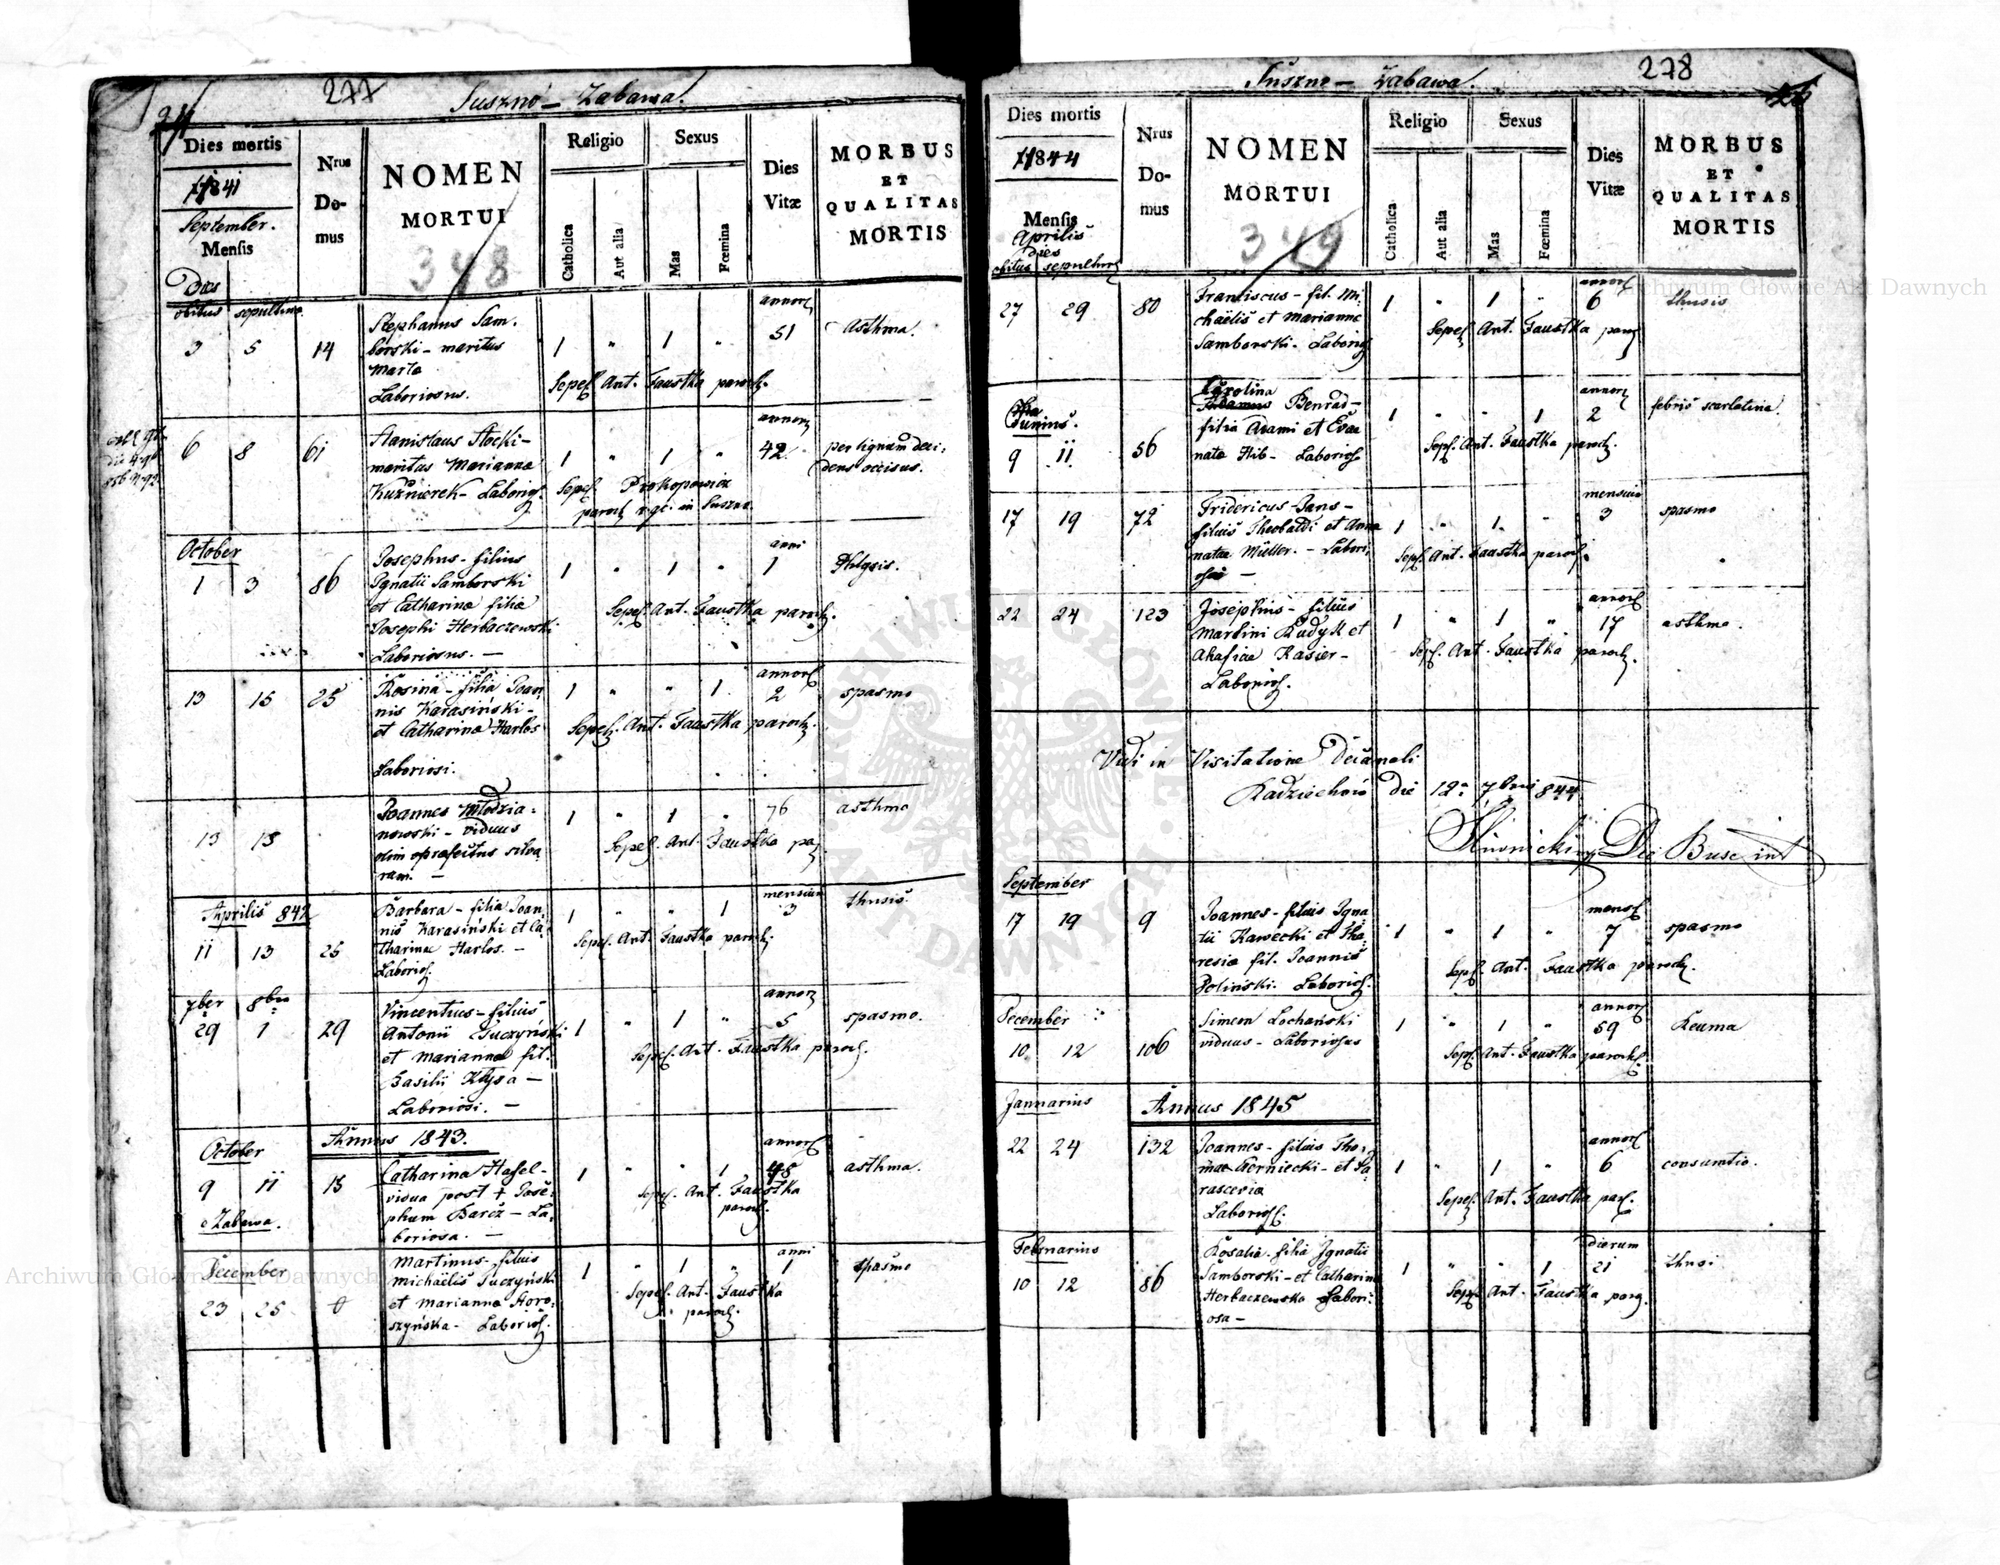 277
24
Suszno - Zabawa.
Dies mortis
1841
September.
Mensis
Dies
obitus sepulturae
Nrus
Do-
mus
NOMEN
MORTUI
348
Religio
Catholica
Aut alia
Sexus
Mas
Fœmina
Dies
Vitæ
MORBUS
ET
QUALITAS
MORTIS
3 5 14
Stephanus Sam-
borski - maritus
Marta
Laboriosus.
1 " 1 "
annor
51
Asthma.
Sepel. Ant. Faustka paroch.
6 8 61
Stanislaus Stocki -
maritus Marianna
Kuźnierek - Laborios.
1 " 1 "
annor
42
per lignum deci-
dens occisus.
Sepel. Prokopowicz
paroch r. gr. in Suszno
October
1 3 86
Josephus - filius
Ignatii Samborski
et Catharina filia
Josephi Herbaczewski
Laboriosus. -
1 " 1 "
anni
1
Phtysis.
Sepel. Ant. Faustka paroch.
13 15 25
Rosina - filia Joan
nis Karasiński -
et Catharina Harlos
Laboriosi.
1 " " 1
annor
2
spasmo
Sepel. Ant. Faustka paroch.
13 15
Joannes Młodzia-
nowski - viduus
olim præfectus silva
rum. -
1 " 1 "
76
asthma
Sepel. Ant. Faustka par.
Aprilis 842
11 13 25
Barbara - filia Joan-
nis Karasiński et Ca-
tharina Harlos. -
Laborios.
1 " " 1
mensium
3
thusis.
Sepel. Ant. Faustka paroch.
7ber 8bro
29 1 29
Vincentius - filius
Antonii Suczyński
et Marianna fil.
Basilii Kłysa -
Laboriosi. -
1 " 1 "
annor
5
spasmo.
Sepel. Ant. Faustka paroch.
Annus 1843.
October
9 11 15
e Zabawa.
Catharina Hasel -
vidua post + Jose-
phum Barcz - La-
boriosa. -
1 " " 1
annor
45
asthma.
Sepel. Ant. Faustka
paroch.
December
23 25
Martinus - filius
Michaelis Suczyński
et Marianna Horo-
szyńska - Laborios.
1 " 1 "
anni
1
spasmo
Sepel. Ant. Faustka
paroch.
278
Suszno - Zabawa.
Dies mortis
1844
Mensis
Aprilis
Dies
obitus sepulturae
Nrus
Do-
mus
NOMEN
MORTUI
349
Religio
Catholica
Aut alia
Sexus
Mas
Fœmina
Dies
Vitæ
MORBUS
ET
QUALITAS
MORTIS
27 29 80
Franciscus - fil. Mi-
chaelis et Marianna
Samborski - Laborios
1 " 1 "
annor
6
thusis
Sepel. Ant. Faustka paroch
Junius.
9 11 56
Carolina
Benrad -
filia Adami et Evae
nata Hib - Laborios.
1 " " 1
annor
2
febris scarlatina.
Sepel. Ant. Faustka paroch.
17 19 72
Fridericus Jans -
filius Theobaldi et Anna
natae Müller. - Labori-
osi -
1 " 1 "
mensium
3
spasmo
Sepel. Ant. Faustka paroch.
22 24 123
Josephus - filius
Martini Kudyk et
Akasiae Kasier -
Laborios.
1 " 1 "
annor
17
asthma.
Sepel. Ant. Faustka paroch.
Vidi in Visitatione Decanali
Radziechów die 12a 7bris 844
Dec Busc int
September
17 19 9
Joannes - filius Igna-
tii Kawecki et The-
resia fil. Joannis
Poliński. Laborios.
1 " 1 "
mens
7
spasmo
Sepel. Ant. Faustka paroch.
December
10 12 106
Simeon Lochański
viduus - Laboriosus
1 " 1 "
annor
59
Reuma
Sepel. Ant. Faustka paroch.
Annus 1845
Januarius
22 24 132
Joannes - filius Tho-
mae Czerniecki - et Pa
rascevia
Laborios.
1 " 1 "
annor
6
consumtio.
Sepel. Ant. Faustka par.
Februarius
10 12 86
Rosalia - filia Ignatii
Samborski - et Catharina
Herbaczewska Labori-
osa -
1 " " 1
dierum
21
thusi
Sepel. Ant. Faustka paroch.
Archiwum Główne Akt Dawnych
Archiwum Główne Akt Dawnych
ARCHIWUM GŁÓWNE AKT DAWNYCH